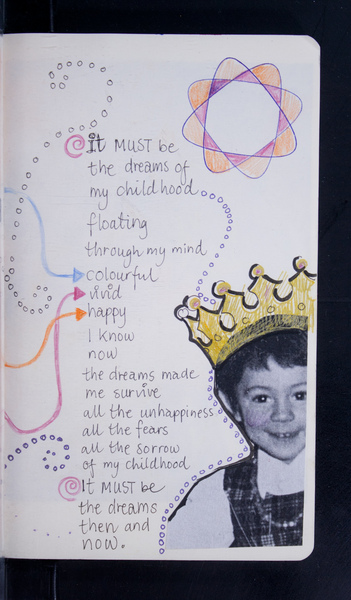 it MUST be
the dreams of
my childhood
floating
through my mind
colourful
vivid
happy
I know
now
the dreams made
me survive
all the unhappiness
all the fears
all the sorrow
of my childhood
It MUST be
the dreams
then and
now.